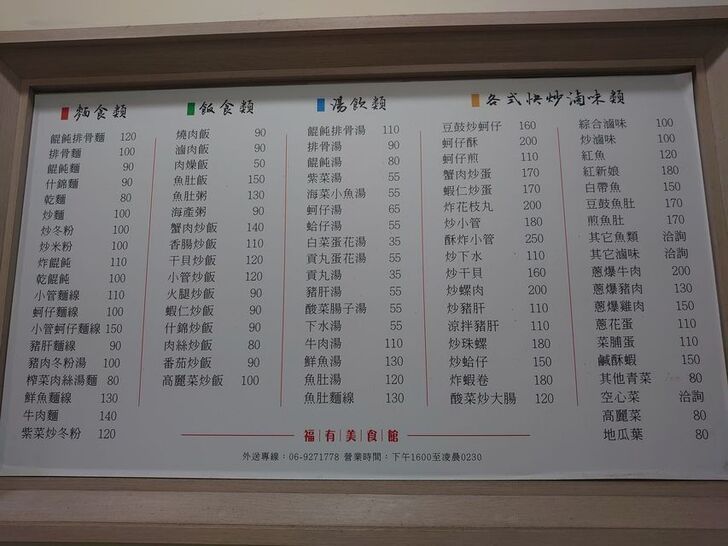 麵食類
餛飩排骨麵 120
排骨麵 100
餛飩麵 90
什錦麵 90
乾麵 80
炒麵 100
炒冬粉 100
炒米粉 100
炸餛飩 110
乾餛飩 100
小管麵線 110
蚵仔麵線 100
小管蚵仔麵線 150
豬肝麵線 90
豬肉冬粉湯 100
榨菜肉絲湯麵 80
鮮魚麵線 130
牛肉麵 140
紫菜炒冬粉 120
飯食類
燒肉飯 90
滷肉飯 90
肉燥飯 50
魚肚飯 150
魚肚粥 130
海產粥 90
蟹肉炒飯 140
香腸炒飯 110
干貝炒飯 120
小管炒飯 120
火腿炒飯 90
蝦仁炒飯 90
什錦炒飯 90
肉絲炒飯 80
番茄炒飯 90
高麗菜炒飯 100
湯飲類
餛飩排骨湯 110
排骨湯 90
餛飩湯 80
紫菜湯 55
海菜小魚湯 55
蚵仔湯 65
蛤仔湯 55
白菜蛋花湯 35
貢丸蛋花湯 35
貢丸湯 35
豬肝湯 55
酸菜腸子湯 55
下水湯 55
牛肉湯 110
鮮魚湯 130
魚肚湯 120
魚肚麵線 130
各式快炒滷味類
豆鼓炒蚵仔 160
蚵仔酥 200
蚵仔煎 110
蟹肉炒蛋 170
蝦仁炒蛋 170
炸花枝丸 200
炒小管 180
酥炸小管 250
炒下水 110
炒干貝 160
炒螺肉 200
炒豬肝 110
涼拌豬肝 110
炒珠螺 180
炒蛤仔 150
炸蝦卷 180
酸菜炒大腸 120
綜合滷味 100
炒滷味 100
紅魚 120
紅新娘 180
白帶魚 150
豆鼓魚肚 170
煎魚肚 170
其它魚類 洽詢
其它滷味 洽詢
蔥爆牛肉 200
蔥爆豬肉 130
蔥爆雞肉 150
蔥花蛋 110
菜脯蛋 110
鹹酥蝦 150
其他青菜 80
空心菜 洽詢
高麗菜 80
地瓜葉 80
福|有|美|食|館
外送專線：06-9271778 營業時間：下午1600至凌晨0230